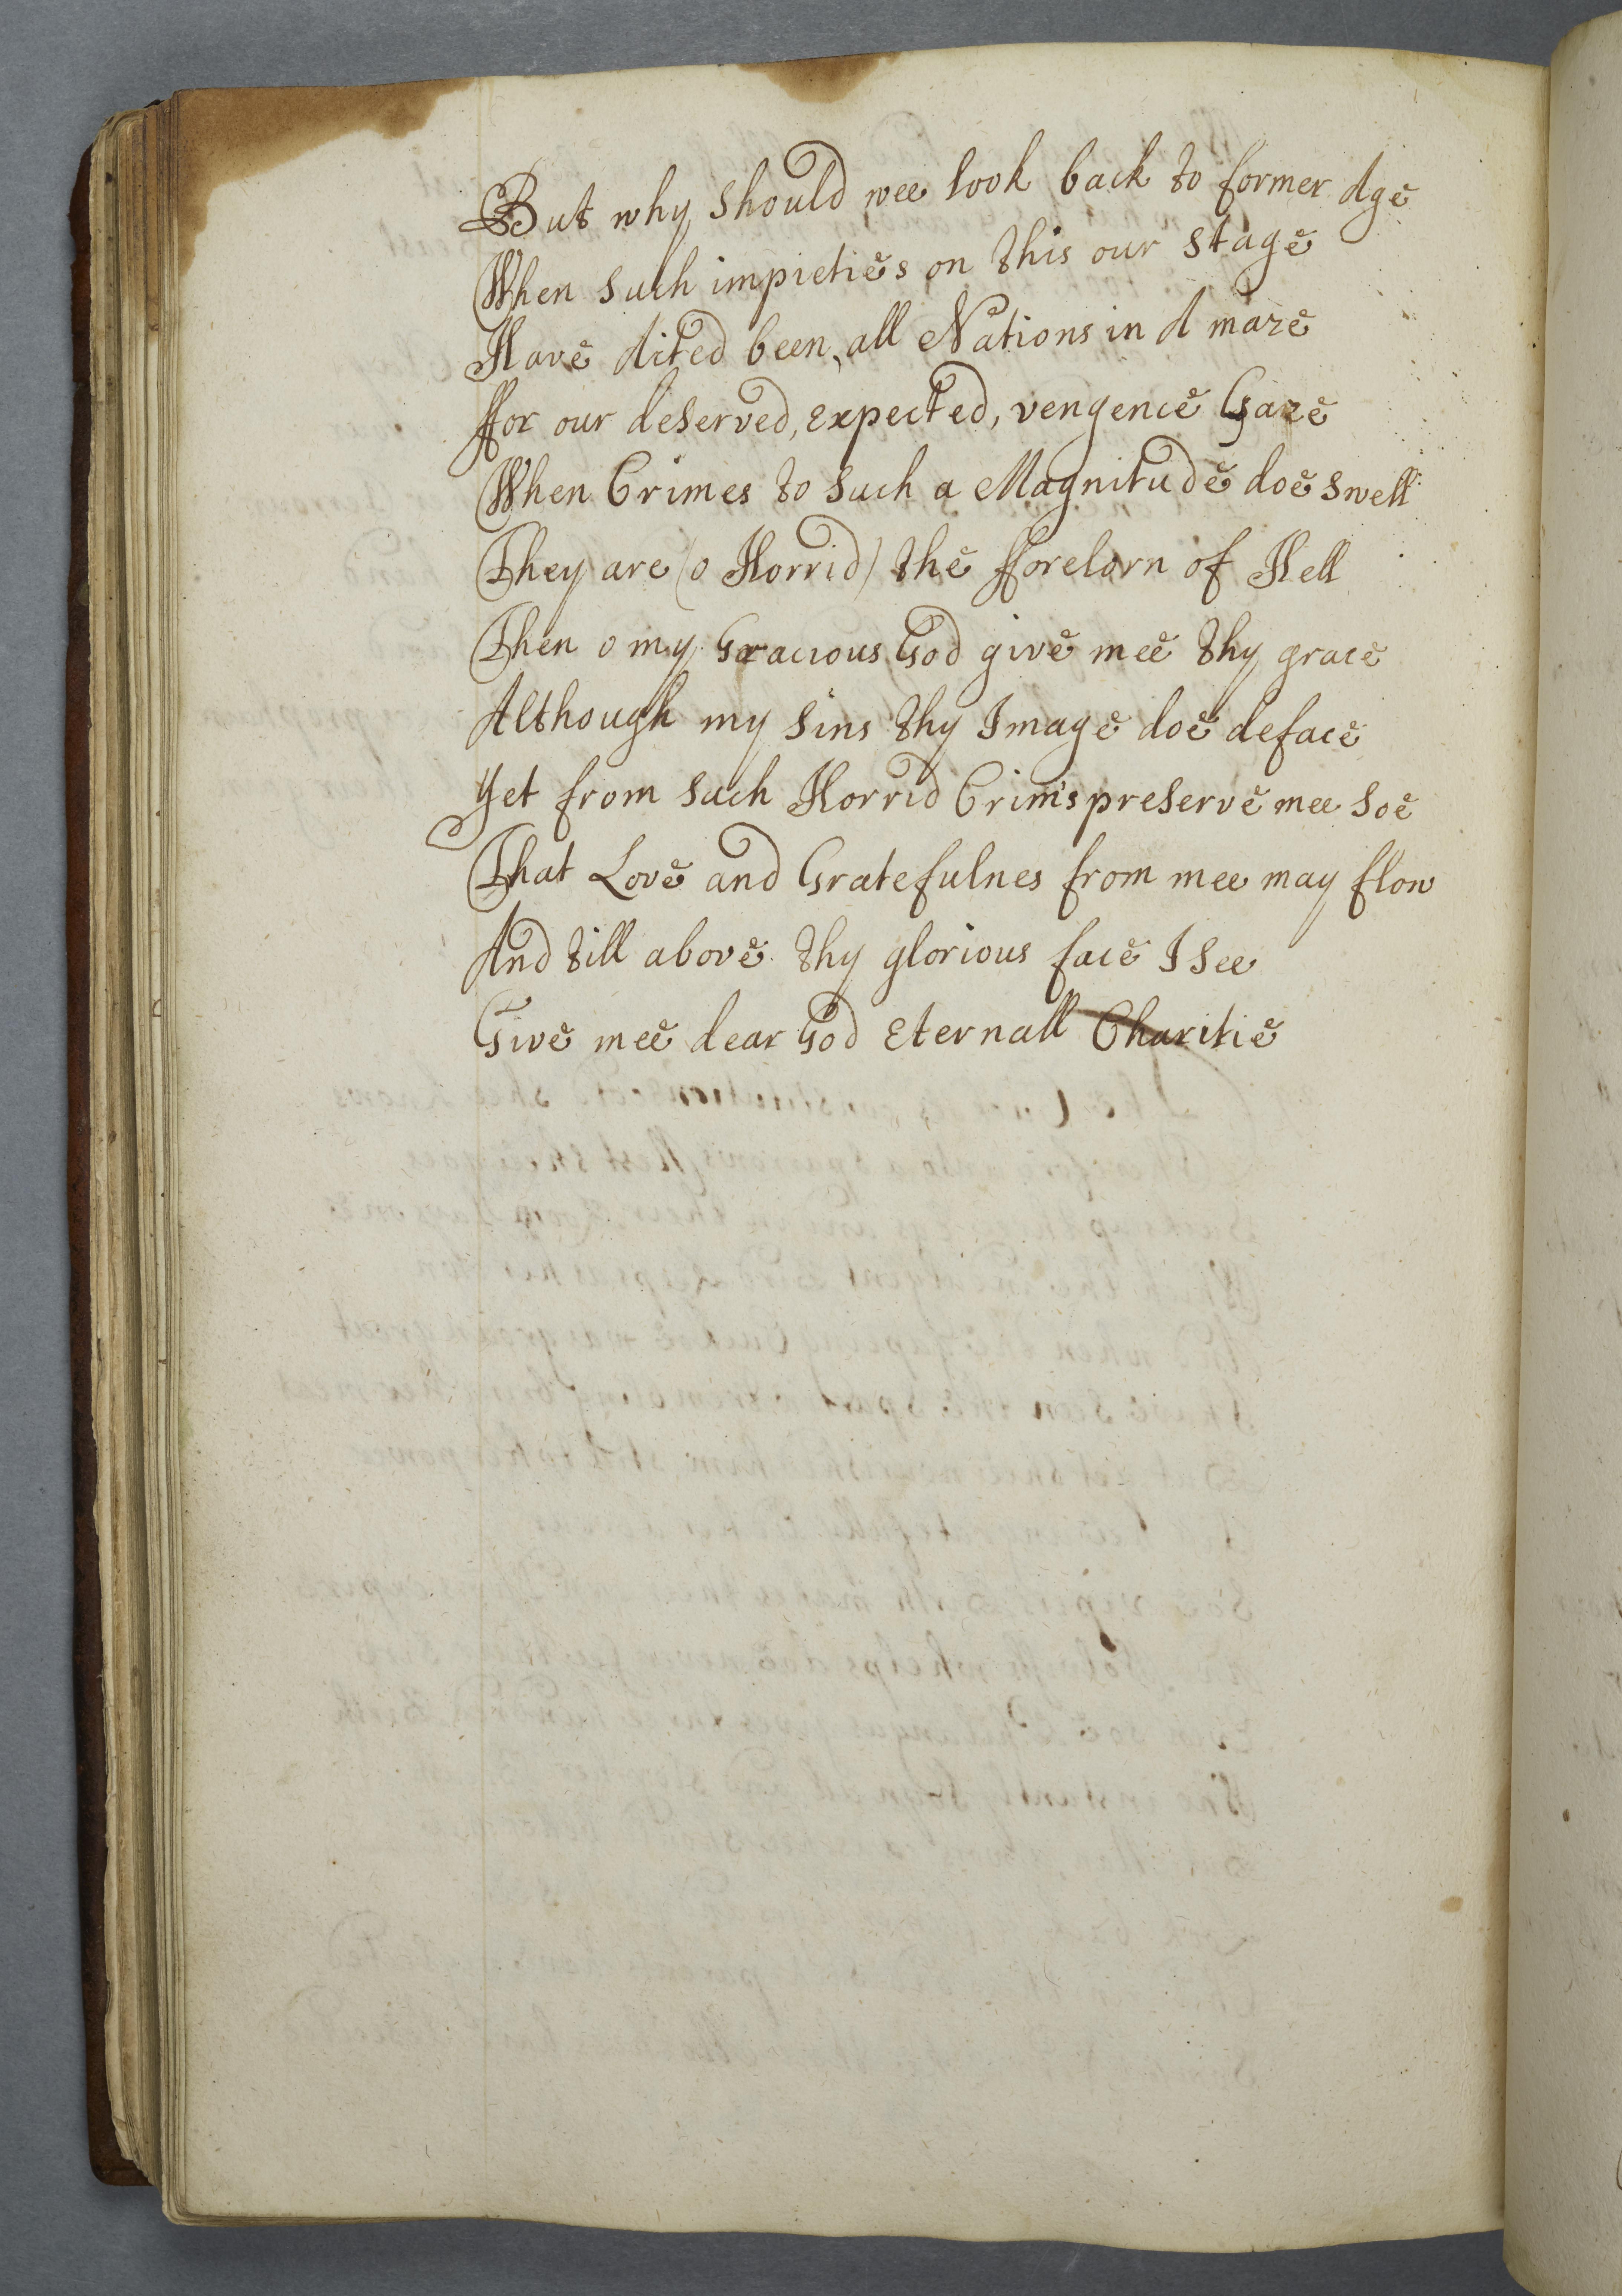 But why should wee look back to former Age
When such impieties on this our stage
Have Acted been, all Nations in A maze
ffor our deserved, expected, vengence Gaze
When Crimes to such a Magnitude doe swell
They are (o Horrid) the fforelorn of Hell
Then o my Gracious God give mee thy grace
Although my sins thy Image doe deface
Yet from such Horrid Crim's preserve mee soe
That Love and Gratefulnes from mee may flow
And till above thy glorious face I see
Give mee dear God Eternall Charitie